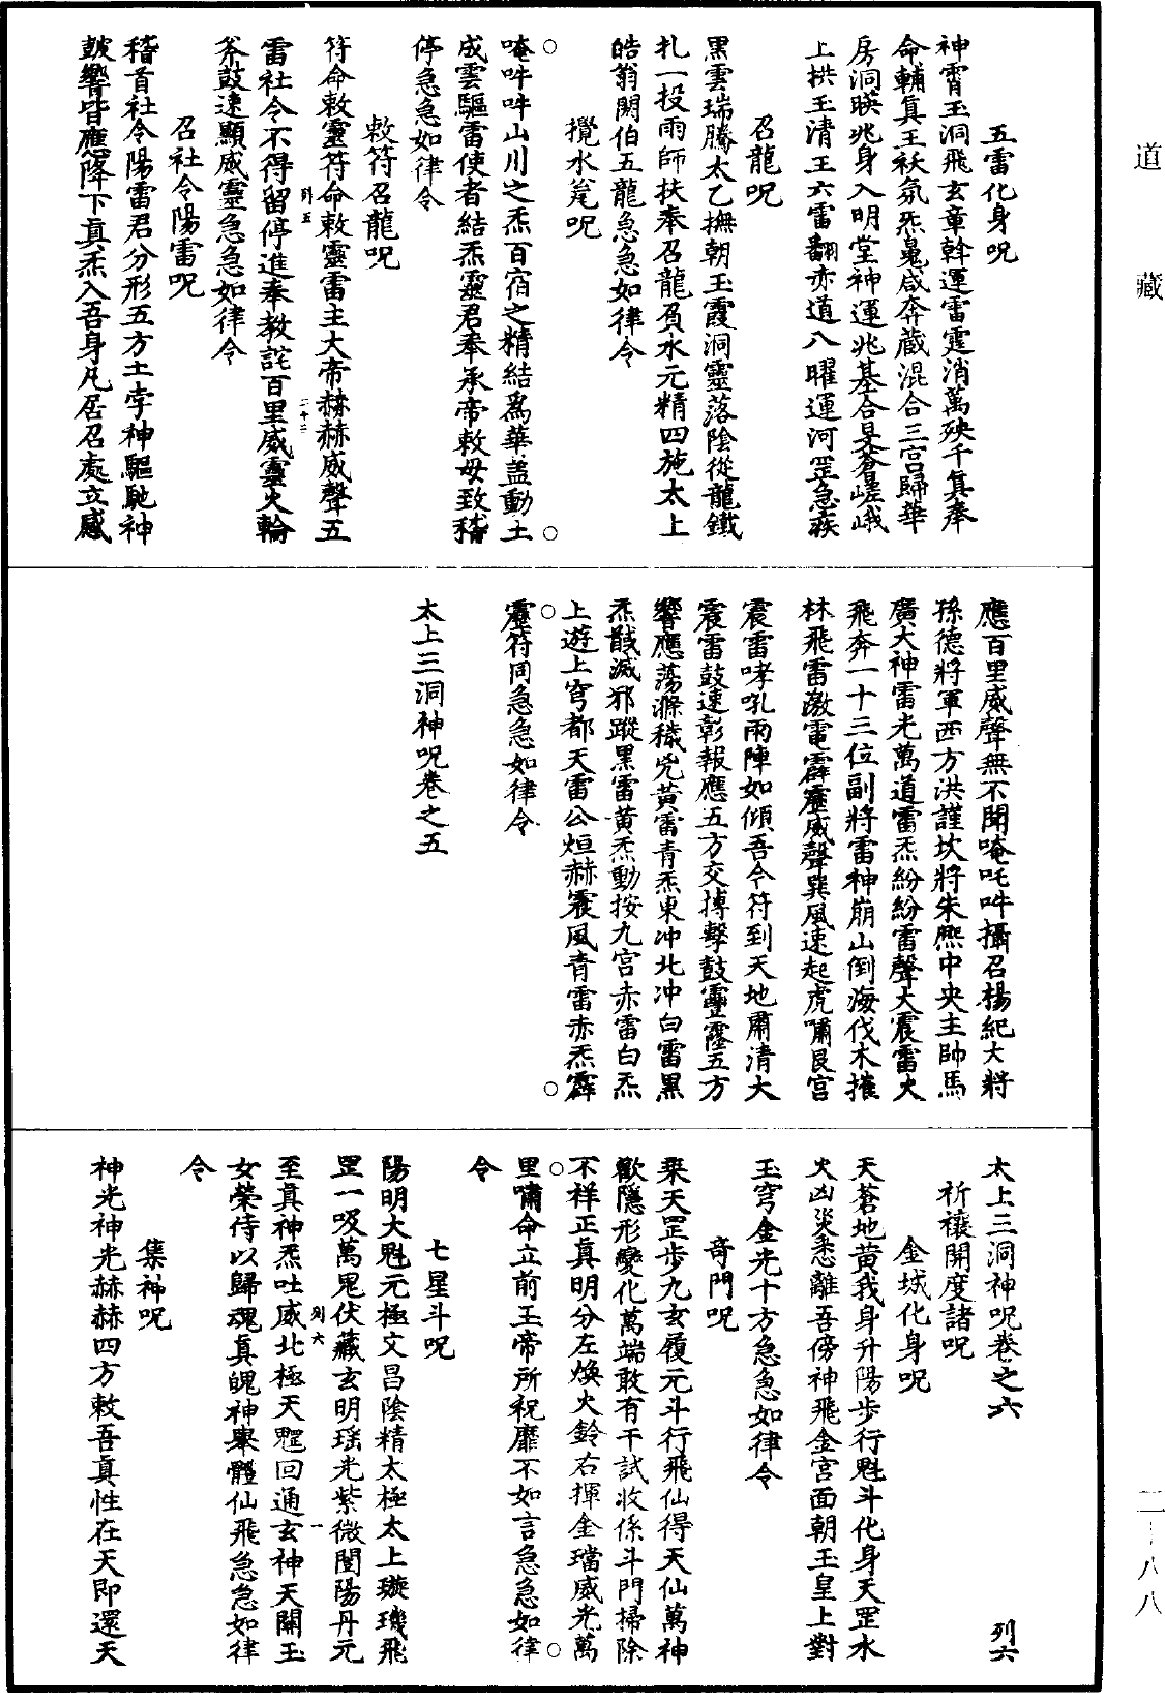 道藏
五雷化身呪
神霄玉洞飛玄章斡運雷霆消萬殃千真奉
命輔真王袄氛炁鬼咸奔藏混合三宮歸華
房洞暎兆身入明堂神運兆基合旻蒼嵯峨
上拱玉清王六雷翻赤道八曜運河罡急疾
召龍呪
黑雲瑞騰太乙撫朝玉霞洞靈落陰從龍鐵
扎一投雨師扶奉召龍負水元精四施太上
皓翁閼伯五龍急急如律令
攪水瓮呪
唵吽吽山川之炁百宿之精結爲華盖動土
成雲驅雷使者結炁靈君奉承帝敕毋致稽
停急急如律令
敕符召龍呪
符命敕靈符命敕靈雷主大帝赫赫威聲五
雷社令不得留停進奉教詫百里威靈火輪
斧鼓速顯威靈急急如律令
召社令陽雷呪
稽首社令陽雷君分形五方土孛神驅馳神
鼓響皆應降下真炁入吾身凡居召處立感
應百里威聲無不聞唵吒吽攝召楊紀大將
孫德將軍西方洪謹坎將朱熙中央主帥馬
廣大神雷光萬道雷炁紛紛雷聲大震雷火
飛奔一十三位副將雷神崩山倒海伐木摧
林飛雷激電霹靂威聲巽風速起虎嘯艮宮
震雷哮吼雨陣如傾吾今符到天地肅清大
震雷鼓速彰報應五方交摶擊鼓靊霳五方
響應蕩滌穢兇黃雷青炁東冲北冲白雷黑
炁戩滅邪蹤黑雷黃炁動按九宮赤雷白炁
上遊上穹都天雷公烜赫震風青雷赤炁霹
靂符同急急如律令
太上三洞神呪卷之五
太上三洞神呪卷之六 列六
祈禳開度諸呪
金城化身呪
天蒼地黃我身升陽步行魁斗化身天罡水
火凶災悉離吾傍神飛金宮面朝玉皇上對
玉穹金光十方急急如律令
奇門呪
乘天罡步九玄履元斗行飛仙得天仙萬神
歡隱形變化萬端敢有干試收係斗門掃除
不祥正真明分左煥火鈴右揮金璫威光萬
里嘯命立前玉帝所祝靡不如言急急如律
令
七星斗呪
陽明大魁元極文昌陰精太極太上璇璣飛
罡一吸萬鬼伏藏玄明瑤光紫微闓陽丹元
至真神炁吐威北極天魁回通玄神天關玉
女榮侍以歸魂真魄神舉體仙飛急急如律
令
集神呪
神光神光赫赫四方敕吾真性在天即還天